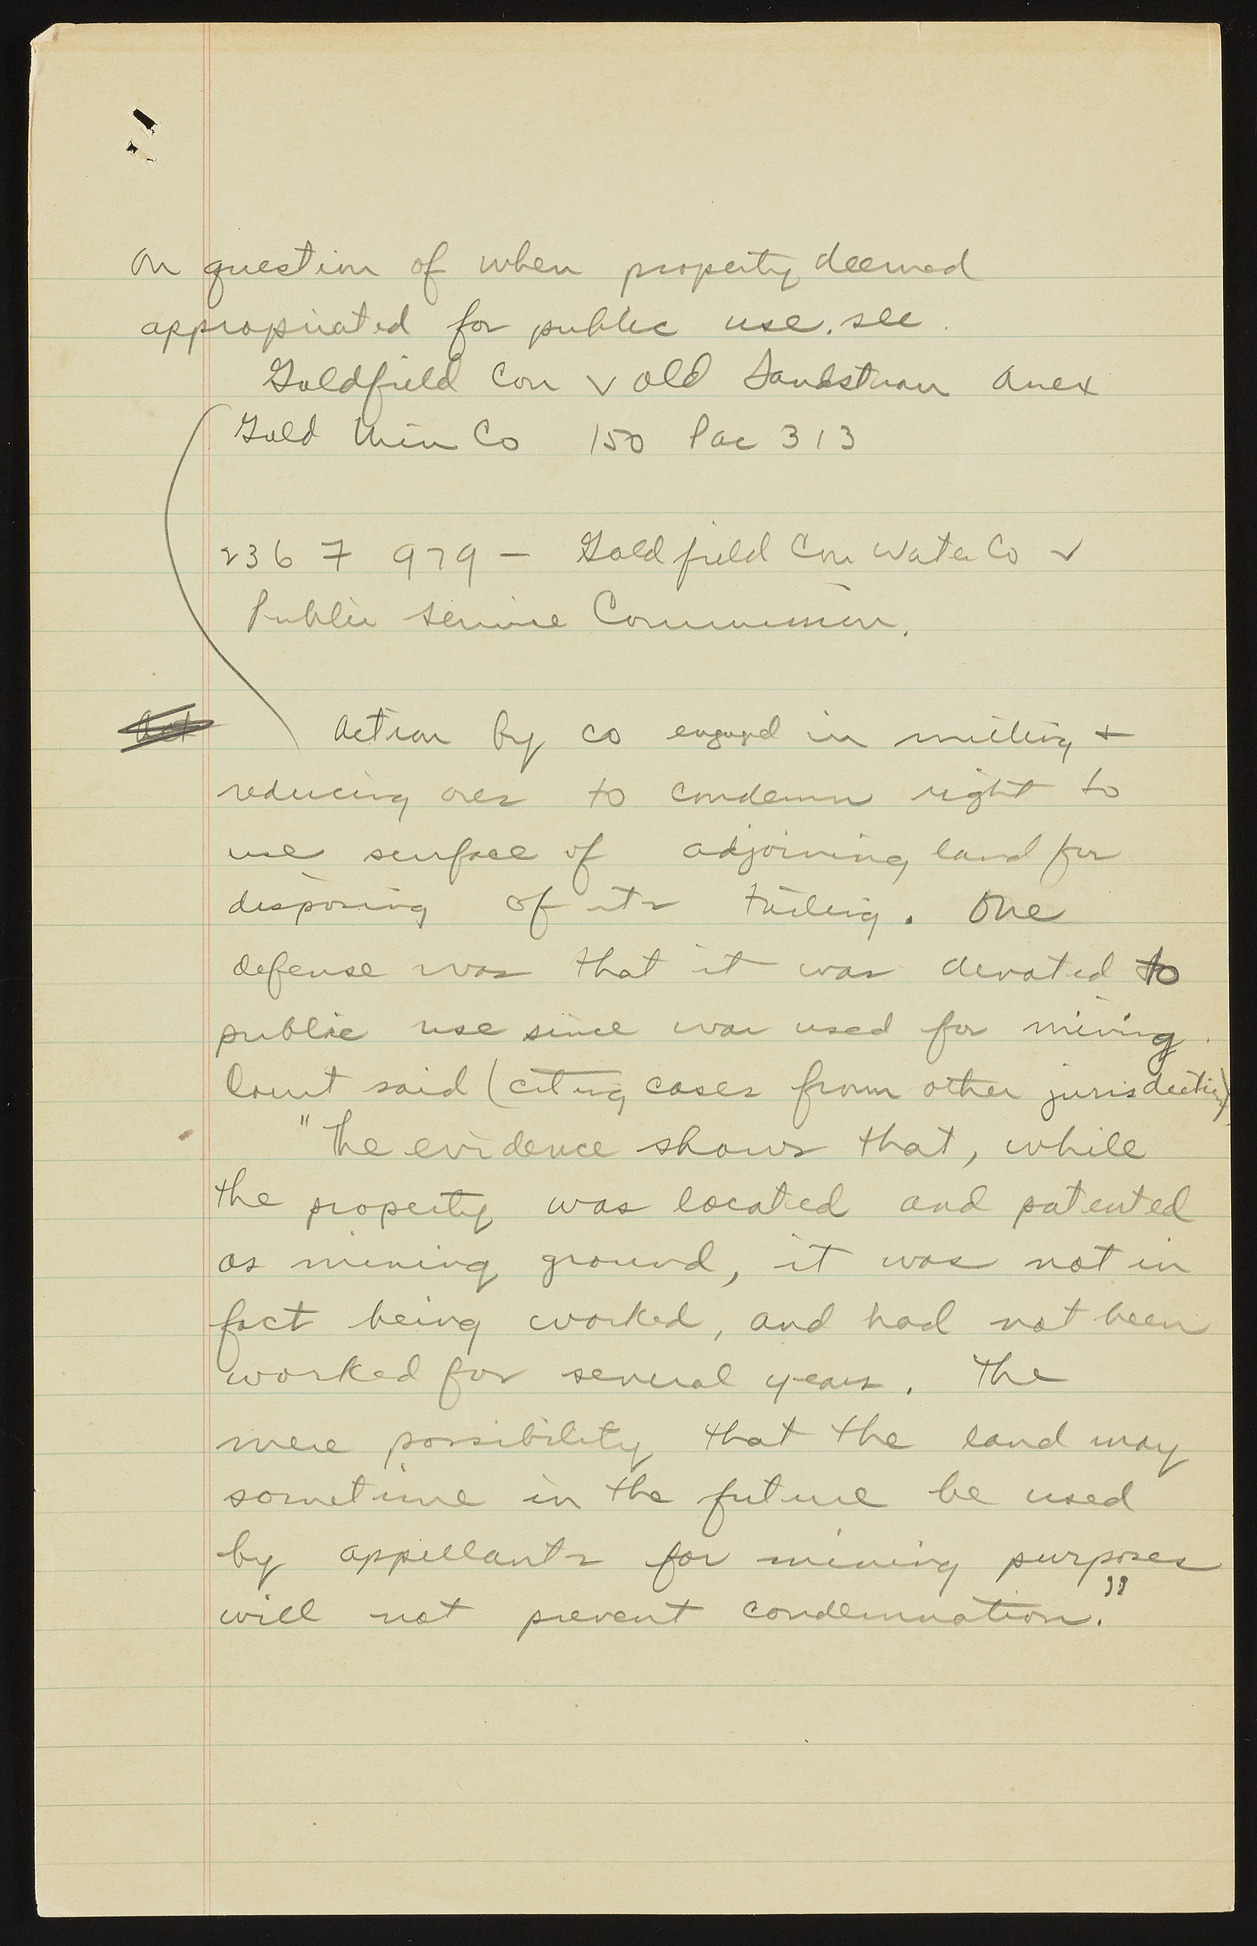 On question of when property deemed
appropriated for public use, see
Goldfield Con v Old Sandstrom Anex
Gold Min Co 150 Pac 313
236 F 979 - Goldfield Con Water Co v
Public Service Commission.
Act
Action by co engaged in milling +
reducing ores to condemn right to
use surface of adjoining land for
disposing of its tailing. One
defense was that it was devoted to
public use since was used for mining.
Court said (citing cases from other jurisdiction)
"The evidence shows that, while
the property was located and patented
as mining ground, it was not in
fact being worked, and had not been
worked for several years. The
mere possibility that the land may
sometime in the future be used
by appellants for mining purposes
will not prevent condemnation."